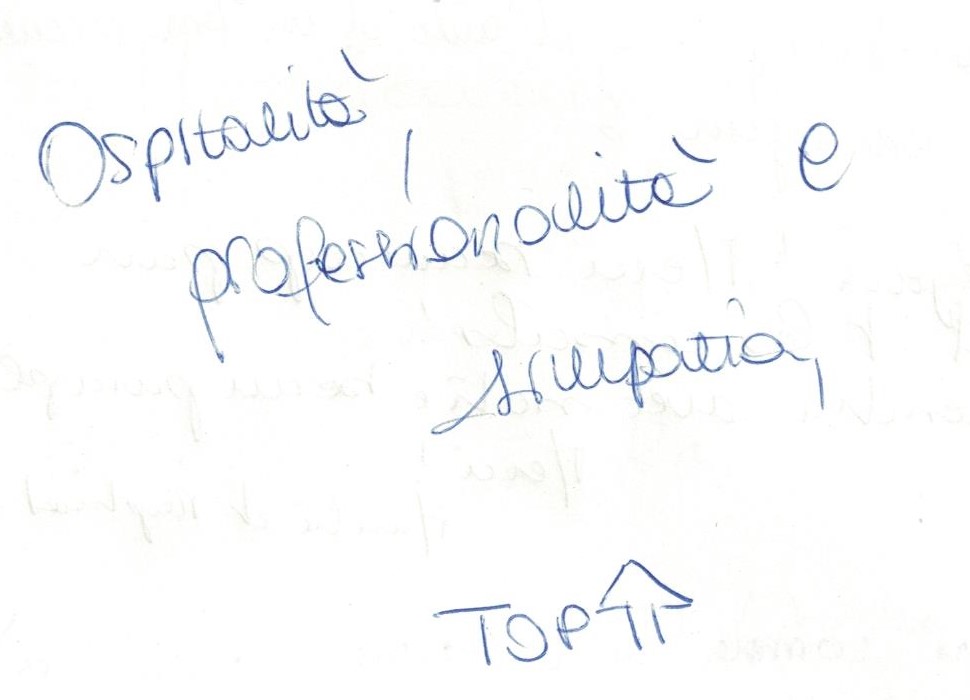 Ospitalità,
professionalità e
simpatia,
TOP